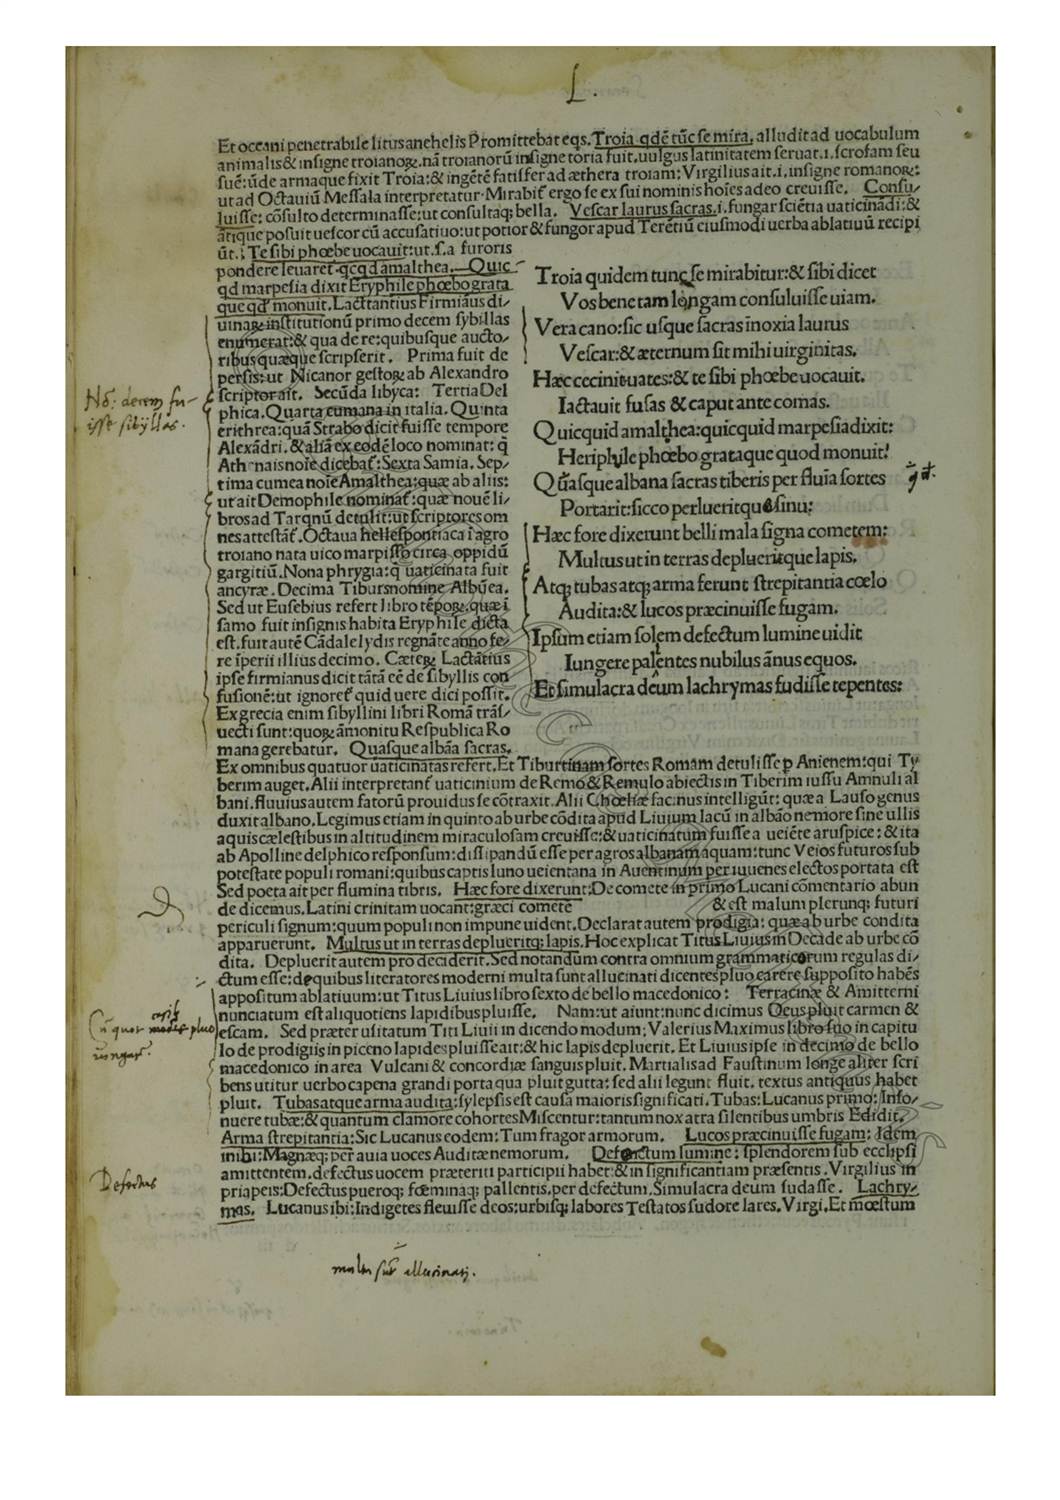 L.
Et oceani penetrabile litus anchelis Promittebat eqs. Troia qdē tūc se mira, alludit ad uocabulum
animalis & insigne troianoꝝ. nā troianorū insigne toria fuit. uulgus latinitatem seruat .i. scrofam seu
suē: ūde armaque fixit Troia: & ingētē fatis fer ad æthera troiam: Virgilius ait .i. insigne romanoꝝ:
ut ad Octauiū Messala interpretatur. Mirabit ergo se ex sui nominis hoies adeo creuisse. Consu
luisse: cōsulto determinasse: ut consultaq; bella. Vescar laurus sacras .i. fungar sciētia uaticinādi: &
ātique posuit uescor cū accusatiuo: ut potior & fungor apud Terētiū eiusmodi uerba ablatiuū recipi
ūt. i Te sibi phœbe uocauit: ut .s. a furoris
pondere leuaret. qcqd amalthea.—Quic
qd marpesia dixit Eryphile phœbo grata
que qd monuit. Lactantius Firmiāus di/
uinaꝝ institutionū primo decem sybillas
enumerat: & qua de re: quibusque aucto/
ribus quæque scripserit. Prima fuit de
persis: ut Nicanor gestoꝝ ab Alexandro
scriptor ait. Secūda libyca: Tertia Del
phica. Quarta cumana in italia. Quinta
erithrea: quā Strabo dicit fuisse tempore
Alexādri. & aliā ex eodē loco nominat: q̄
Athenais noīe dicebat: Sexta Samia. Sep/
tima cumea noīe Amalthea: quæ ab aliis:
ut ait Demophile nominat: quæ nouē li/
bros ad Tarqnū detulit: ut scriptores om
nes attestāt. Octaua hellespontiaca ī agro
troiano nata uico marpisso circa oppidū
gargitiū. Nona phrygia: q̄ uaticinata fuit
ancyræ. Decima Tiburs nomine Albŋea.
Sed ut Eusebius refert libro tēpoꝝ. quæ ī
samo fuit insignis habita Eryphile dicta
est. fuit autē Cādale lydis regnāte anno fe/
re īperii illius decimo. Cæteꝝ Lactātius
ipse firmianus dicit tātā cē de sibyllis con
fusionē: ut ignoret quid uere dici possit.
Ex grecia enim sibyllini libri Romā trās/
uecti sunt: quoꝝ āmonitu Respublica Ro
mana gerebatur. Quasque albāa sacras.
Troia quidem tunc se mirabitur: & sibi dicet
Vos bene tam longam consuluisse uiam.
Vera cano: sic usque sacras īnoxia laurus
Vescar: & æternum sit mihi uirginitas.
Hæc cecinit uates: & te sibi phœbe uocauit.
Iactauit fusas & caput ante comas.
Quicquid amalthea: quicquid marpesia dixit:
Heriphile phœbo grataque quod monuit:
Quasque albana sacras tiberis per fluīa sortes
Portarit: sicco perlueritque sinu:
Hæc fore dixerunt belli mala signa cometem:
Multus ut in terras deplueritque lapis.
Atq; tubas atq; arma ferunt strepitantia cœlo
Audita: & lucos præcinuisse fugam.
Ipsum etiam solem defectum lumine uidit
Iungere palentes nubilus ānus equos.
Et simulacra deum lachrymas fudisse tepentes:
Ex omnibus quatuor uaticinatas refert. Et Tiburtinam sortes Romam detulisse p Anienem: qui Ty
berim auget. Alii interpretant uaticinium de Remo & Remulo abiectis in Tiberim iussu Amnuli al
bani. fluuius autem fatorū prouidus se cōtraxit. Alii Chœliæ facinus intelligūt: quæ a Lauso genus
duxit albano. Legimus etiam in quinto ab urbe cōdita apud Liuium lacū in albāo nemore sine ullis
aquis cælestibus in altitudinem miraculosam creuisse: & uaticinatum fuisse a ueiēte aruspice: & ita
ab Apolline delphico responsum: dissipandū esse per agros albanam aquam: tunc Veios futuros sub
potestate populi romani: quibus captis Iuno ueientana in Auentinum per iuuenes electos portata est
Sed poeta ait per flumina tibris. Hæc fore dixerunt: De comete in primo Lucani cōmentario abun
de dicemus. Latini crinitam uocant: græci cometē & est malum plerunq; futuri
periculi signum: quum populi non impune uident. Declarat autem prodigia: quæ ab urbe condita
apparuerunt. Multus ut in terras deplueritq; lapis. Hoc explicat Titus Liuius in Decade ab urbe cō
dita. Depluerit autem pro deciderit. Sed notandum contra omnium grammaticorum regulas di/
ctum esse: de quibus literatores moderni multa sunt allucinati dicentes pluo carere supposito habēs
appositum ablatiuum: ut Titus Liuius libro sexto de bello macedonico: Terracinæ & Amitterni
nunciatum est aliquotiens lapidibus pluisse. Nam: ut aiunt: nunc dicimus Deus pluit carmen &
escam. Sed præter usitatum Titi Liuii in dicendo modum; Valerius Maximus libro suo in capitu
lo de prodigiis in piceno lapides pluisse ait: & hic lapis depluerit. Et Liuius ipse in decimo de bello
macedonico in area Vulcani & concordiæ sanguis pluit. Martialis ad Faustinum longe aliter scri
bens utitur uerbo capena grandi porta qua pluit gutta: sed alii legunt fluit. textus antiquus habet
pluit. Tubas atque arma audita: sylepsis est causa maioris significati. Tubas: Lucanus primo: Inso/
nuere tubæ: & quantum clamore cohortes Miscentur: tantum nox atra silentibus umbris Edidit.
Arma strepitantia: Sic Lucanus eodem: Tum fragor armorum. Lucos præcinuisse fugam: Idem
inibi: Magnæq; per auia uoces Auditæ nemorum. Defectum lumine: splendorem sub ecclipsi
amittentem. defectus uocem præteriti participii habet: & in significantiam præsentis. Virgilius in
priapeis: Defectus pueroq; fœminaq; pallentis. per defectum. Simulacra deum sudasse. Lachry/
mas. Lucanus ibi: Indigetes fleuisse deos: urbisq; labores Testatos sudore lares. Virgi. Et mœstum
Nō: decem fu-
isse sibyllas.
Defectus
multa sūt allucinati.